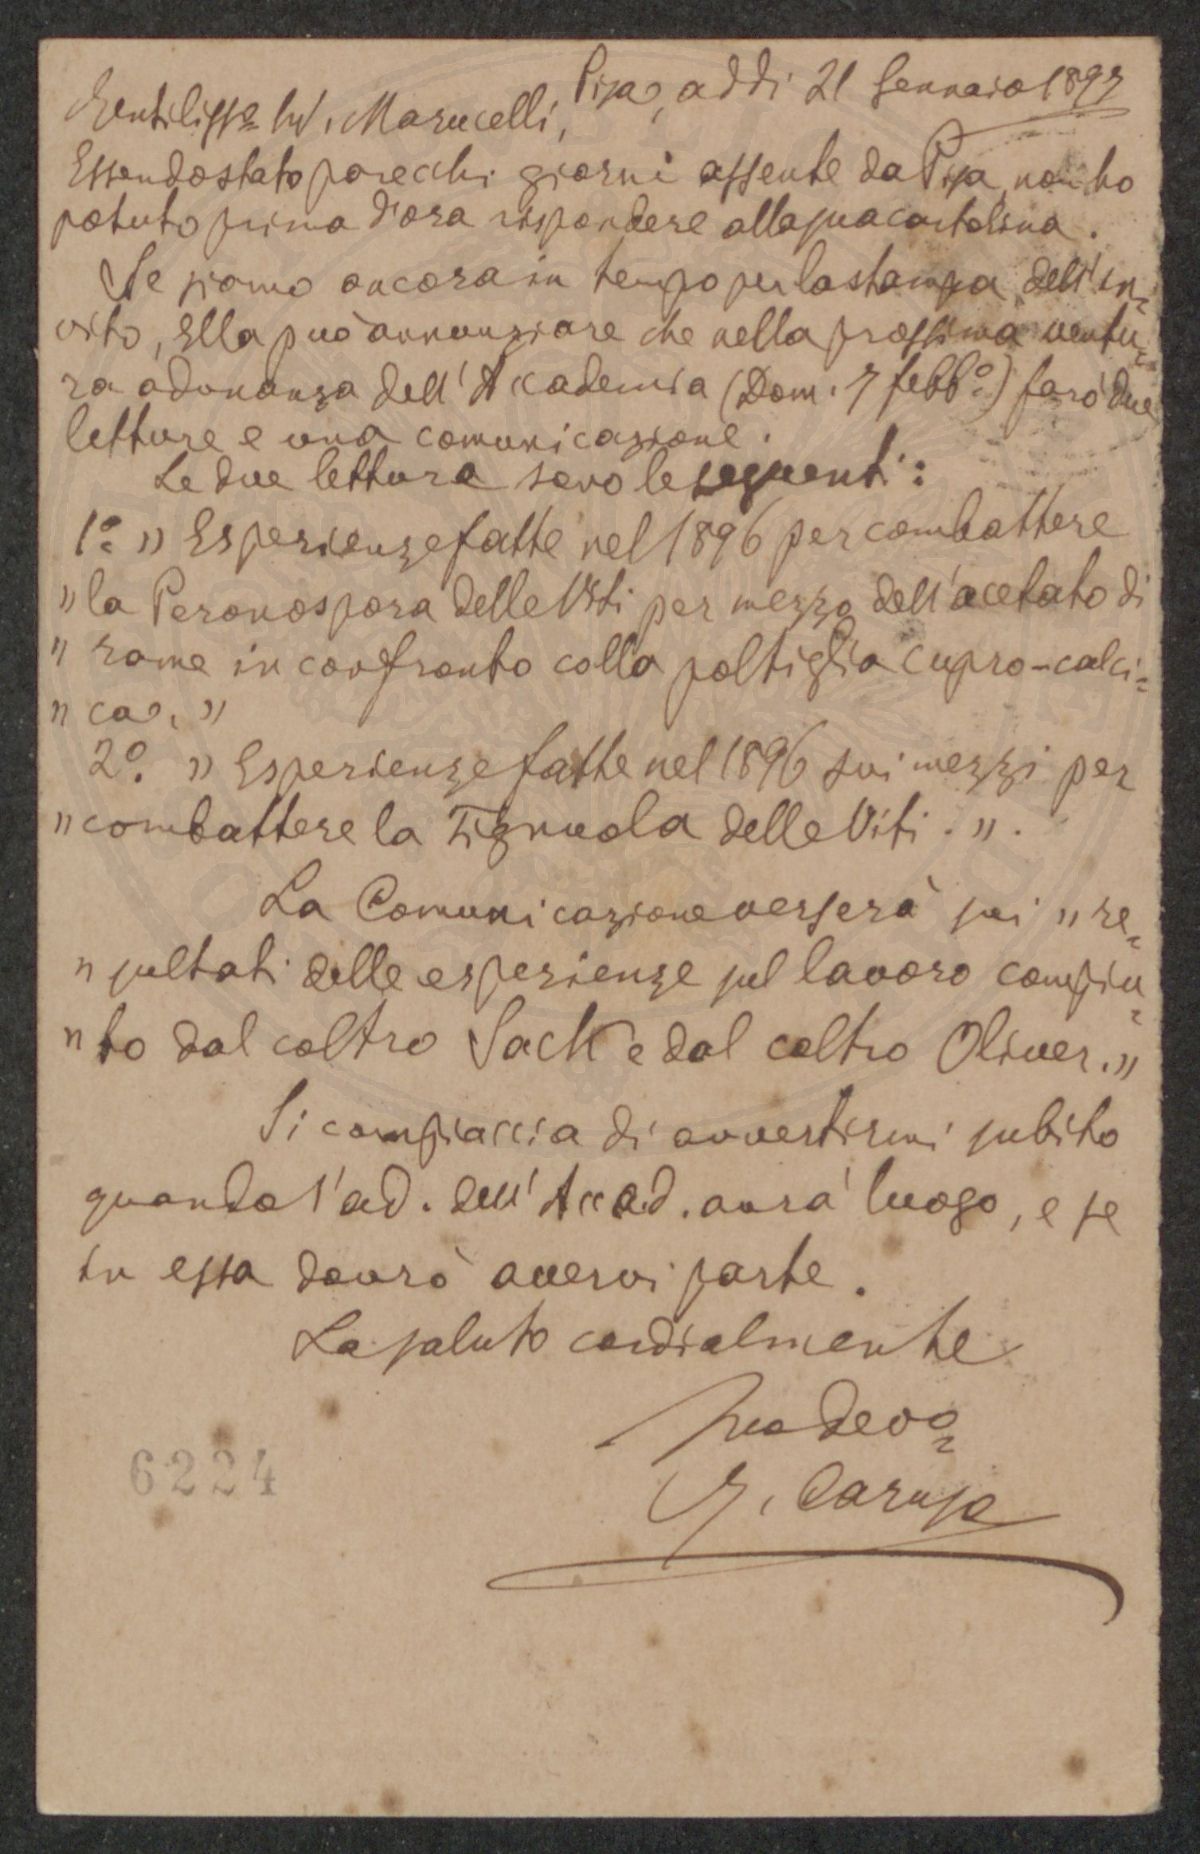 Pisa, addì 21 Gennaio 1897
Gentiliss.º Sig. Marucelli,
Essendo stato parecchi giorni assente da Pisa, non ho
potuto prima d'ora rispondere alla sua cartolina.
Se siamo ancora in tempo per la stampa dell'in=
vito, Ella può annunziare che nella prossima ventu=
ra adunanza dell'Accademia (Dom. 7 febb.º) farò due
letture e una comunicazione.
Le due letture sono le seguenti:
1.º " Esperienze fatte nel 1896 per combattere
" la Peronospora delle Viti per mezzo dell'acetato di
" rame in confronto colla poltiglia cupro-calci=
" ca. "
2º. " Esperienze fatte nel 1896 sui mezzi per
" combattere la Tignuola delle Viti. ".
La Comunicazione verserà sui " re=
" sultati delle esperienze sul lavoro compiu=
" to dal coltro Sack e dal coltro Oliver. "
Si compiaccia di avvertirmi subito
quando l'ad. dell'Accad. avrà luogo, e se
in essa dovrò avervi parte.
La saluto cordialmente
Suo devo=
G. Caruso
6224